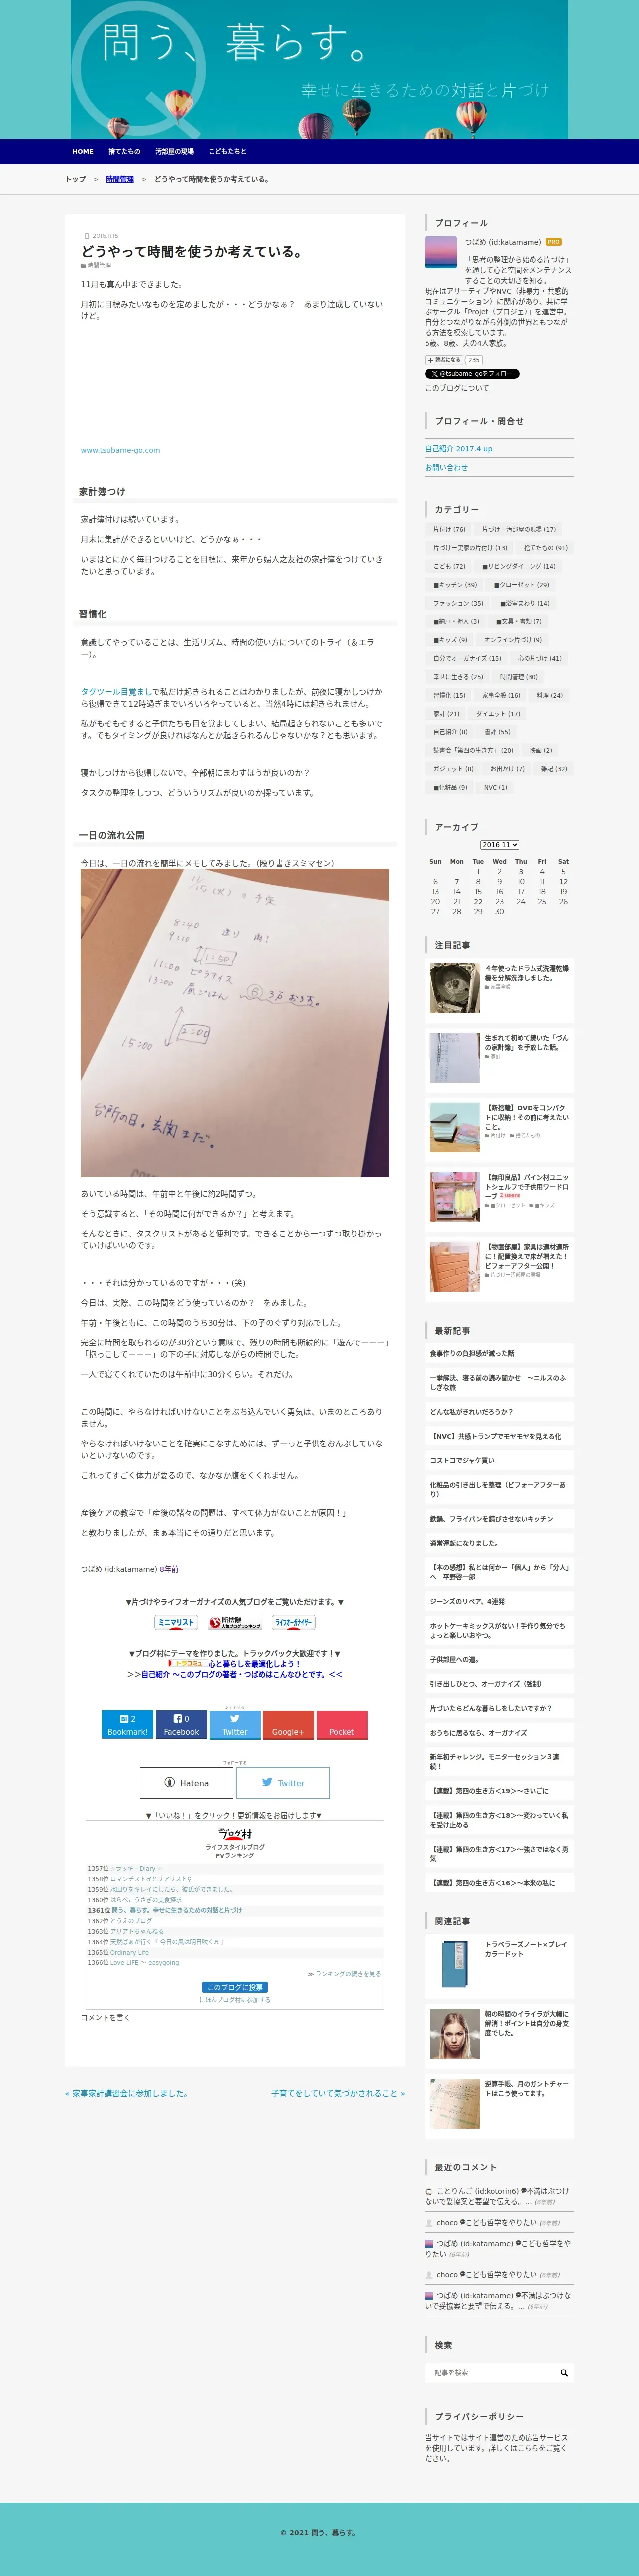 問う、暮らす。
幸せに生きるための対話と片づけ
HOME 捨てたもの 汚部屋の現場 こどもたちと
トップ > 時間管理 > どうやって時間を使うか考えている。
2016.11.15
どうやって時間を使うか考えている。
時間管理
11月も真ん中まできました。
月初に目標みたいなものを定めましたが・・・どうかなぁ？ あまり達成していない
けど。
www.tsubame-go.com
家計簿つけ
家計簿付けは続いています。
月末に集計ができるといいけど、どうかなぁ・・・
いまはとにかく毎日つけることを目標に、来年から婦人之友社の家計簿をつけていき
たいと思っています。
習慣化
意識してやっていることは、生活リズム、時間の使い方についてのトライ（＆エラ
ー）。
タグツール目覚ましで私だけ起きられることはわかりましたが、前夜に寝かしつけか
ら復帰できて12時過ぎまでいろいろやっていると、当然4時には起きられません。
私がもぞもぞすると子供たちも目を覚ましてしまい、結局起きられないことも多いで
す。でもタイミングが良ければなんとか起きられるんじゃないかな？とも思います。
寝かしつけから復帰しないで、全部朝にまわすほうが良いのか？
タスクの整理をしつつ、どういうリズムが良いのか探っています。
一日の流れ公開
今日は、一日の流れを簡単にメモしてみました。（殴り書きスミマセン）
8:00
8:40
9:10
送り 雨!
11:00
1:50
ピラティス
13:00
昼ごはん
15:00
2:00
台所の日。玄関まだ。
あいている時間は、午前中と午後に約2時間ずつ。
そう意識すると、「その時間に何ができるか？」と考えます。
そんなときに、タスクリストがあると便利です。できることから一つずつ取り掛かっ
ていけばいいのです。
・・・それは分かっているのですが・・・(笑)
今日は、実際、この時間をどう使っているのか？ をみました。
午前・午後ともに、この時間のうち30分は、下の子のぐずり対応でした。
完全に時間を取られるのが30分という意味で、残りの時間も断続的に「遊んでーーー」
「抱っこしてーーー」の下の子に対応しながらの時間でした。
一人で寝てくれていたのは午前中に30分くらい。それだけ。
この時間に、やらなければいけないことをぶち込んでいく勇気は、いまのところあり
ません。
やらなければいけないことを確実にこなすためには、ずーっと子供をおんぶしていな
いといけないのです。
これってすごく体力が要るので、なかなか腹をくくれません。
産後ケアの教室で「産後の諸々の問題は、すべて体力がないことが原因！」
と教わりましたが、まぁ本当にその通りだと思います。
つばめ (id:katamame) 8年前
▼片づけやライフオーガナイズの人気ブログをご覧いただけます。▼
ミニマリスト 断捨離 人気ブログランキング ライフオーガナイザー
▼ブログ村にテーマを作りました。トラックバック大歓迎です！▼
トラコミュ 心と暮らしを最適化しよう！
＞＞自己紹介 〜このブログの著者・つばめはこんなひとです。＜＜
シェアする
2 Bookmark!
0 Facebook
Twitter
Google+
Pocket
フォローする
Hatena
Twitter
▼「いいね！」をクリック！更新情報をお届けします▼
ブログ村
ライフスタイルブログ
PVランキング
1357位 ☆ラッキーDiary ☆
1358位 ロマンチスト♂とリアリスト♀
1359位 水回りをキレイにしたら、彼氏ができました。
1360位 はらぺこうさぎの美食探求
1361位 問う、暮らす。幸せに生きるための対話と片づけ
1362位 とうえのブログ
1363位 アリアトちゃんねる
1364位 天然ばぁが行く「 今日の風は明日吹く♬ 」
1365位 Ordinary Life
1366位 Love LIFE 〜 easygoing
≫ ランキングの続きを見る
このブログに投票
にほんブログ村に参加する
コメントを書く
« 家事家計講習会に参加しました。
子育てをしていて気づかされること »
プロフィール
つばめ (id:katamame) PRO
「思考の整理から始める片づけ」
を通して心と空間をメンテナンス
することの大切さを知る。
現在はアサーティブやNVC（非暴力・共感的
コミュニケーション）に関心があり、共に学
ぶサークル「Projet（プロジェ）」を運営中。
自分とつながりながら外側の世界ともつなが
る方法を模索しています。
5歳、8歳、夫の4人家族。
読者になる 235
@tsubame_goをフォロー
このブログについて
プロフィール・問合せ
自己紹介 2017.4 up
お問い合わせ
カテゴリー
片付け (76) 片づけー汚部屋の現場 (17)
片づけー実家の片付け (13) 捨てたもの (91)
こども (72) ■リビングダイニング (14)
■キッチン (39) ■クローゼット (29)
ファッション (35) ■浴室まわり (14)
■納戸・押入 (3) ■文具・書類 (7)
■キッズ (9) オンライン片づけ (9)
自分でオーガナイズ (15) 心の片づけ (41)
幸せに生きる (25) 時間管理 (30)
習慣化 (15) 家事全般 (16) 料理 (24)
家計 (21) ダイエット (17)
自己紹介 (8) 書評 (55)
読書会「第四の生き方」 (20) 映画 (2)
ガジェット (8) お出かけ (7) 雑記 (32)
■化粧品 (9) NVC (1)
アーカイブ
2016 11
Sun Mon Tue Wed Thu Fri Sat
1 2 3 4 5
6 7 8 9 10 11 12
13 14 15 16 17 18 19
20 21 22 23 24 25 26
27 28 29 30
注目記事
４年使ったドラム式洗濯乾燥
機を分解洗浄しました。
家事全般
生まれて初めて続いた「づん
の家計簿」を手放した話。
家計
【断捨離】DVDをコンパク
トに収納！その前に考えたい
こと。
片付け 捨てたもの
【無印良品】パイン材ユニッ
トシェルフで子供用ワードロ
ーブ 2 users
■クローゼット ■キッズ
【物置部屋】家具は適材適所
に！配置換えで床が増えた！
ビフォーアフター公開！
片づけー汚部屋の現場
最新記事
食事作りの負担感が減った話
一挙解決、寝る前の読み聞かせ 〜ニルスのふ
しぎな旅
どんな私がきれいだろうか？
【NVC】共感トランプでモヤモヤを見える化
コストコでジャケ買い
化粧品の引き出しを整理（ビフォーアフターあ
り）
鉄鍋、フライパンを錆びさせないキッチン
通常運転になりました。
【本の感想】私とは何か－「個人」から「分人」
へ 平野啓一郎
ジーンズのリペア、4連発
ホットケーキミックスがない！手作り気分でち
ょっと楽しいおやつ。
子供部屋への道。
引き出しひとつ、オーガナイズ（強制）
片づいたらどんな暮らしをしたいですか？
おうちに居るなら、オーガナイズ
新年初チャレンジ。モニターセッション３連
続！
【連載】第四の生き方＜19＞〜さいごに
【連載】第四の生き方＜18＞〜変わっていく私
を受け止める
【連載】第四の生き方＜17＞〜強さではなく勇
気
【連載】第四の生き方＜16＞〜本来の私に
関連記事
トラベラーズノート×プレイ
カラードット
朝の時間のイライラが大幅に
解消！ポイントは自分の身支
度でした。
逆算手帳、月のガントチャー
トはこう使ってます。
最近のコメント
ことりんご (id:kotorin6) 不満はぶつけ
ないで妥協案と要望で伝える。… (6年前)
choco こども哲学をやりたい (6年前)
つばめ (id:katamame) こども哲学をや
りたい (6年前)
choco こども哲学をやりたい (6年前)
つばめ (id:katamame) 不満はぶつけな
いで妥協案と要望で伝える。… (6年前)
検索
記事を検索
プライバシーポリシー
当サイトではサイト運営のため広告サービス
を使用しています。詳しくはこちらをご覧く
ださい。
© 2021 問う、暮らす。